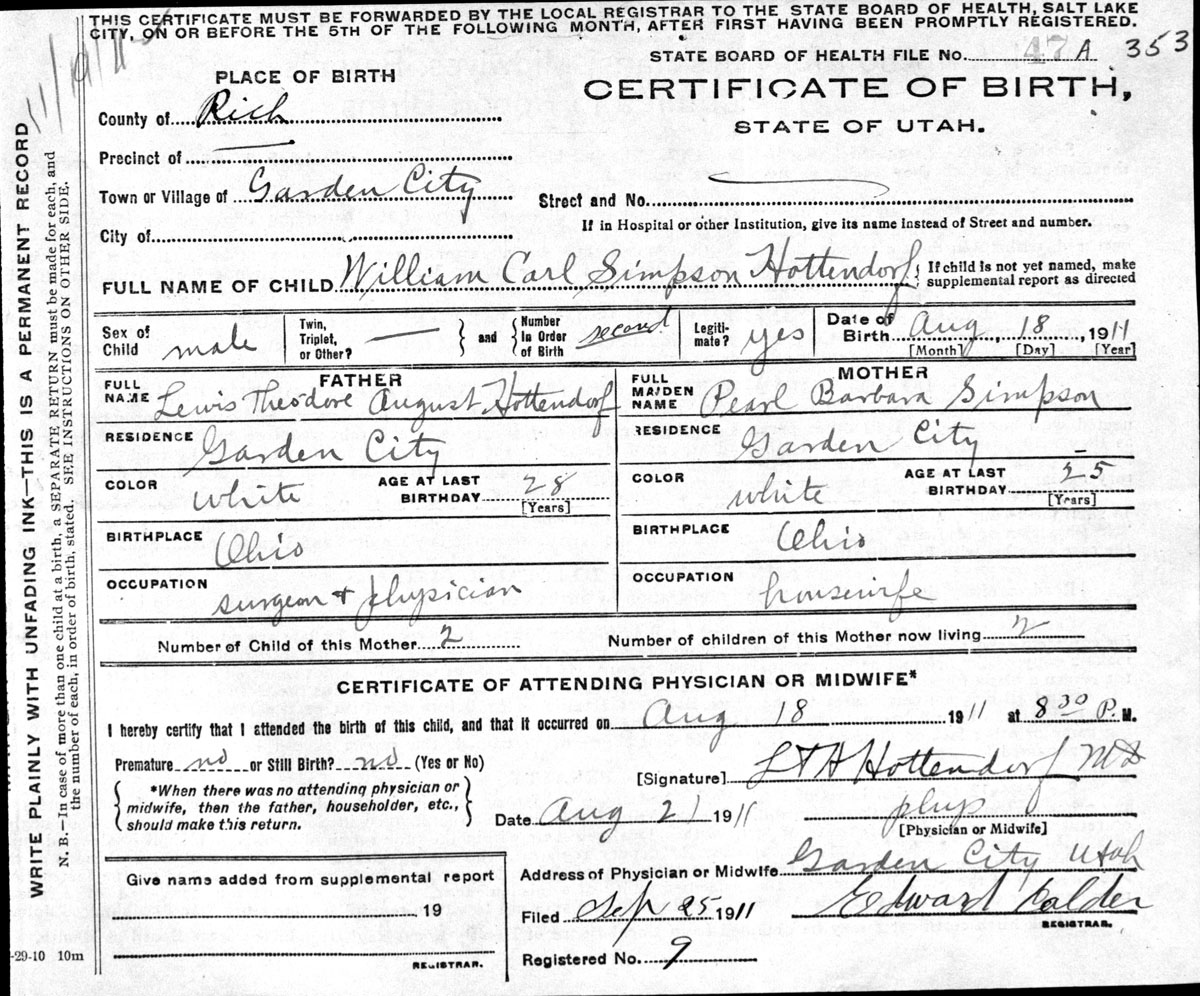 THIS CERTIFICATE MUST BE FORWARDED BY THE LOCAL REGISTRAR TO THE STATE BOARD OF HEALTH, SALT LAKE
CITY, ON OR BEFORE THE 5TH OF THE FOLLOWING MONTH, AFTER FIRST HAVING BEEN PROMPTLY REGISTERED.
STATE BOARD OF HEALTH FILE No. 47 A 353
PLACE OF BIRTH
CERTIFICATE OF BIRTH,
STATE OF UTAH.
County of Rich
Precinct of
Town or Village of Garden City
Street and No.
City of
If in Hospital or other Institution, give its name instead of Street and number.
FULL NAME OF CHILD William Carl Simpson Hottendorf { If child is not yet named, make
supplemental report as directed
Sex of Child male
Twin, Triplet, or Other? —
} and { Number In Order of Birth second
Legitimate? yes
Date of Birth Aug, 18, 1911
[Month] [Day] [Year]
FATHER
FULL NAME Lewis Theodore August Hottendorf
MOTHER
FULL MAIDEN NAME Pearl Barbara Simpson
RESIDENCE Garden City
RESIDENCE Garden City
COLOR white AGE AT LAST BIRTHDAY 28 [Years]
COLOR white AGE AT LAST BIRTHDAY 25 [Years]
BIRTHPLACE Ohio
BIRTHPLACE Ohio
OCCUPATION surgeon + physician
OCCUPATION housewife
Number of Child of this Mother 2 Number of children of this Mother now living 2
CERTIFICATE OF ATTENDING PHYSICIAN OR MIDWIFE*
I hereby certify that I attended the birth of this child, and that it occurred on Aug 18 1911 at 8 30 P. M.
Premature no or Still Birth? no (Yes or No)
[Signature] L T A Hottendorf MD
{ *When there was no attending physician or
midwife, then the father, householder, etc.,
should make this return. }
Date Aug 21 1911
phys
[Physician or Midwife]
Address of Physician or Midwife Garden City Utah
Give name added from supplemental report
19
REGISTRAR.
Filed Sep 25 1911 Edward Calder
REGISTRAR.
Registered No. 9
-29-10 10m
WRITE PLAINLY WITH UNFADING INK—THIS IS A PERMANENT RECORD
N. B.—In case of more than one child at a birth, a SEPARATE RETURN must be made for each, and
the number of each, in order of birth, stated. SEE INSTRUCTIONS ON OTHER SIDE.